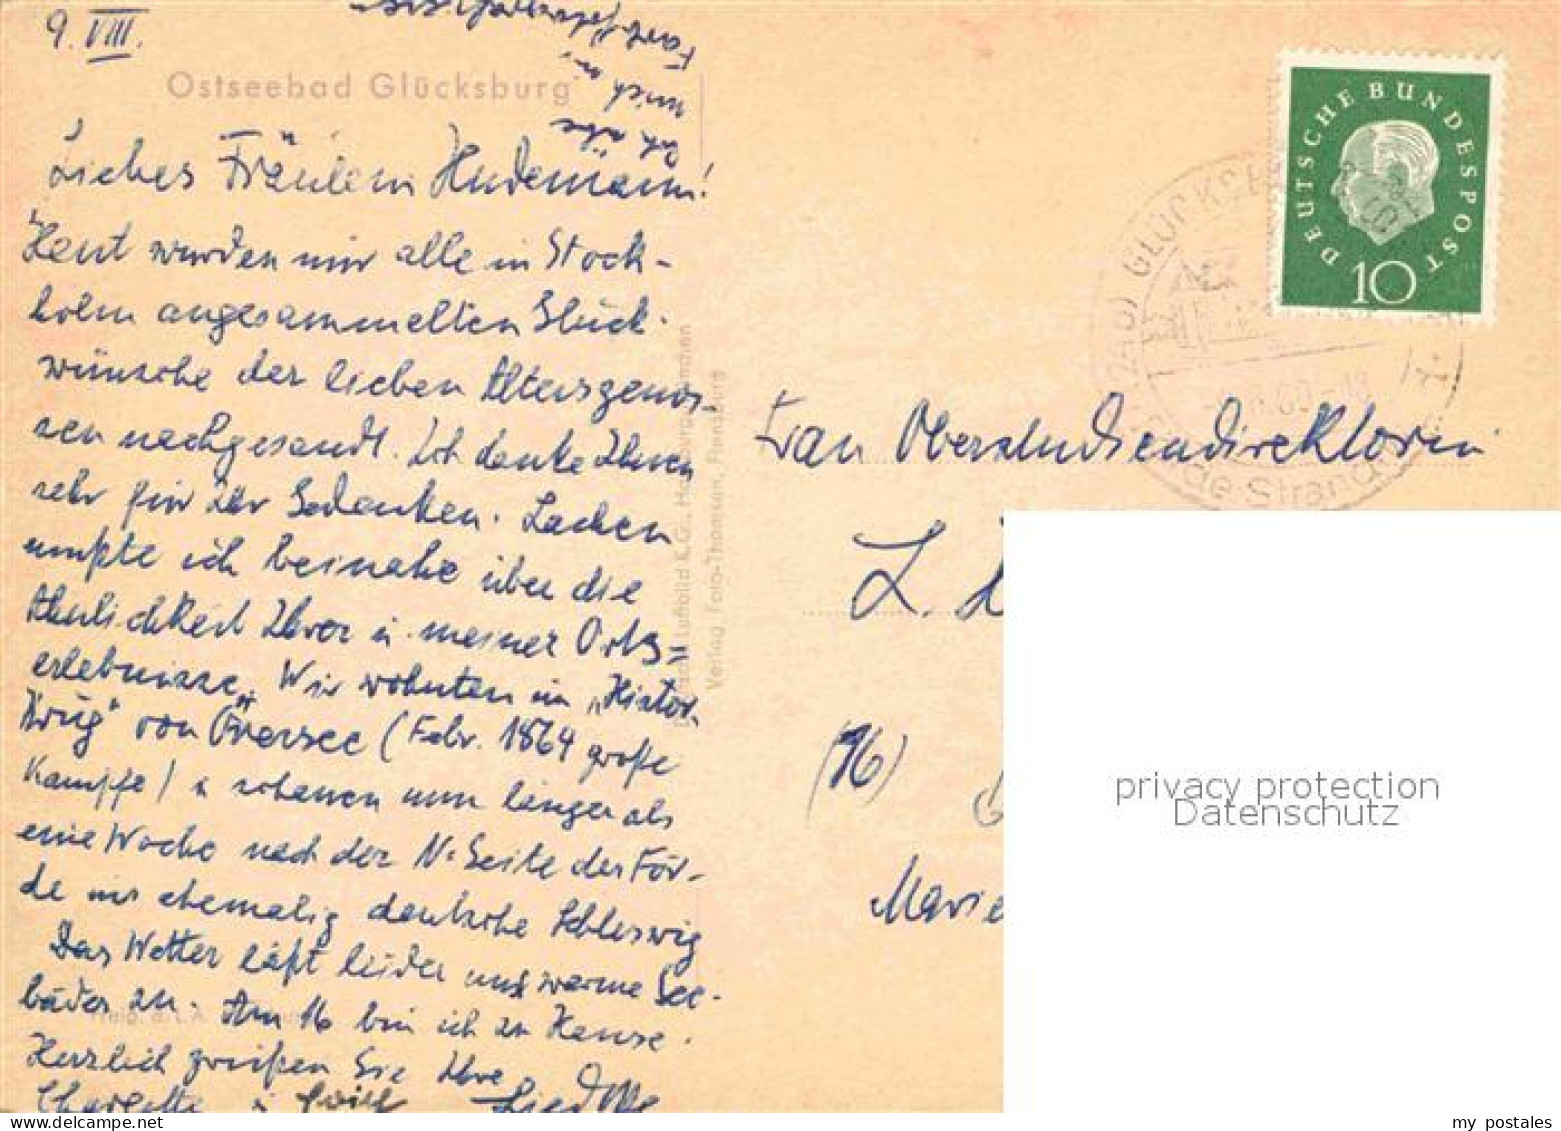 9. VIII.
Ostseebad Glücksburg
Liebes Fräulein Hudemann!
Heut wurden mir alle in Stock-
holm angesammelten Glück-
wünsche der lieben Altersgenos-
sen nachgesandt. Ich danke Ihnen
sehr für Ihr Gedenken. Lachen
mußte ich beinahe über die
Ähnlichkeit Ihrer u. meiner Orts=
erlebnisse. Wir wohnten im „Histor.
Krug" von Översee (Febr. 1864 große
Kämpfe) u schauen nun länger als
eine Woche nach der N-Seite der För-
de ins ehemalig deutsche Schleswig
Das Wetter läßt leider nur warme See-
bäder zu. Am 16 bin ich zu Hause.
Herzlich grüßen Sie Ihre
Charlotte
Luftbild K.G., Hamburg-
Verlag Foto-Thomsen, Flensburg
DEUTSCHE BUNDESPOST
10
GLÜCKSBURG
Frau Oberstudiendirektorin
L.
(16)
Marie
privacy protection
Datenschutz
my postales